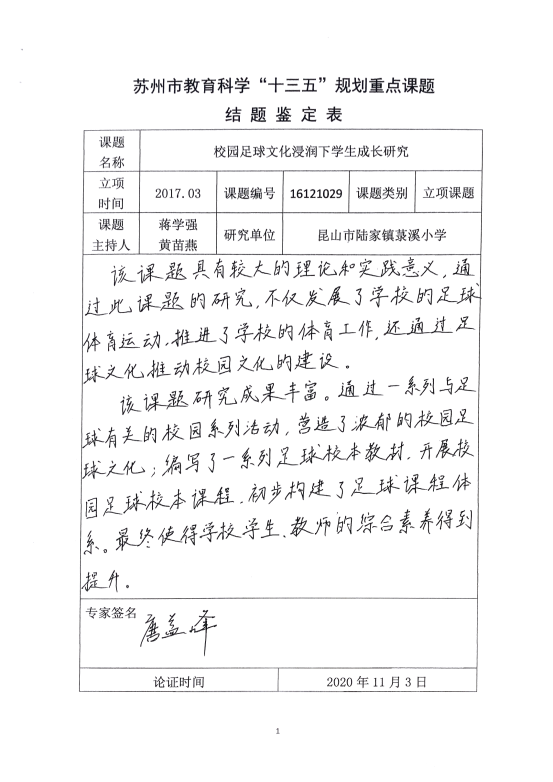 苏州市教育科学“十三五”规划重点课题
结 题 鉴 定 表
课题名称 校园足球文化浸润下学生成长研究
立项时间 2017.03 课题编号 16121029 课题类别 立项课题
课题主持人 蒋学强 黄苗燕 研究单位 昆山市陆家镇菉溪小学
该课题具有较大的理论和实践意义，通
过此课题的研究，不仅发展了学校的足球
体育运动，推进了学校的体育工作，还通过足
球文化推动校园文化的建设。
该课题研究成果丰富。通过一系列与足
球有关的校园系列活动，营造了浓郁的校园足
球文化；编写了一系列足球校本教材，开展校
园足球校本课程，初步构建了足球课程体
系。最终使得学校学生、教师的综合素养得到
提升。
专家签名 唐益峰
论证时间 2020 年 11 月 3 日
1